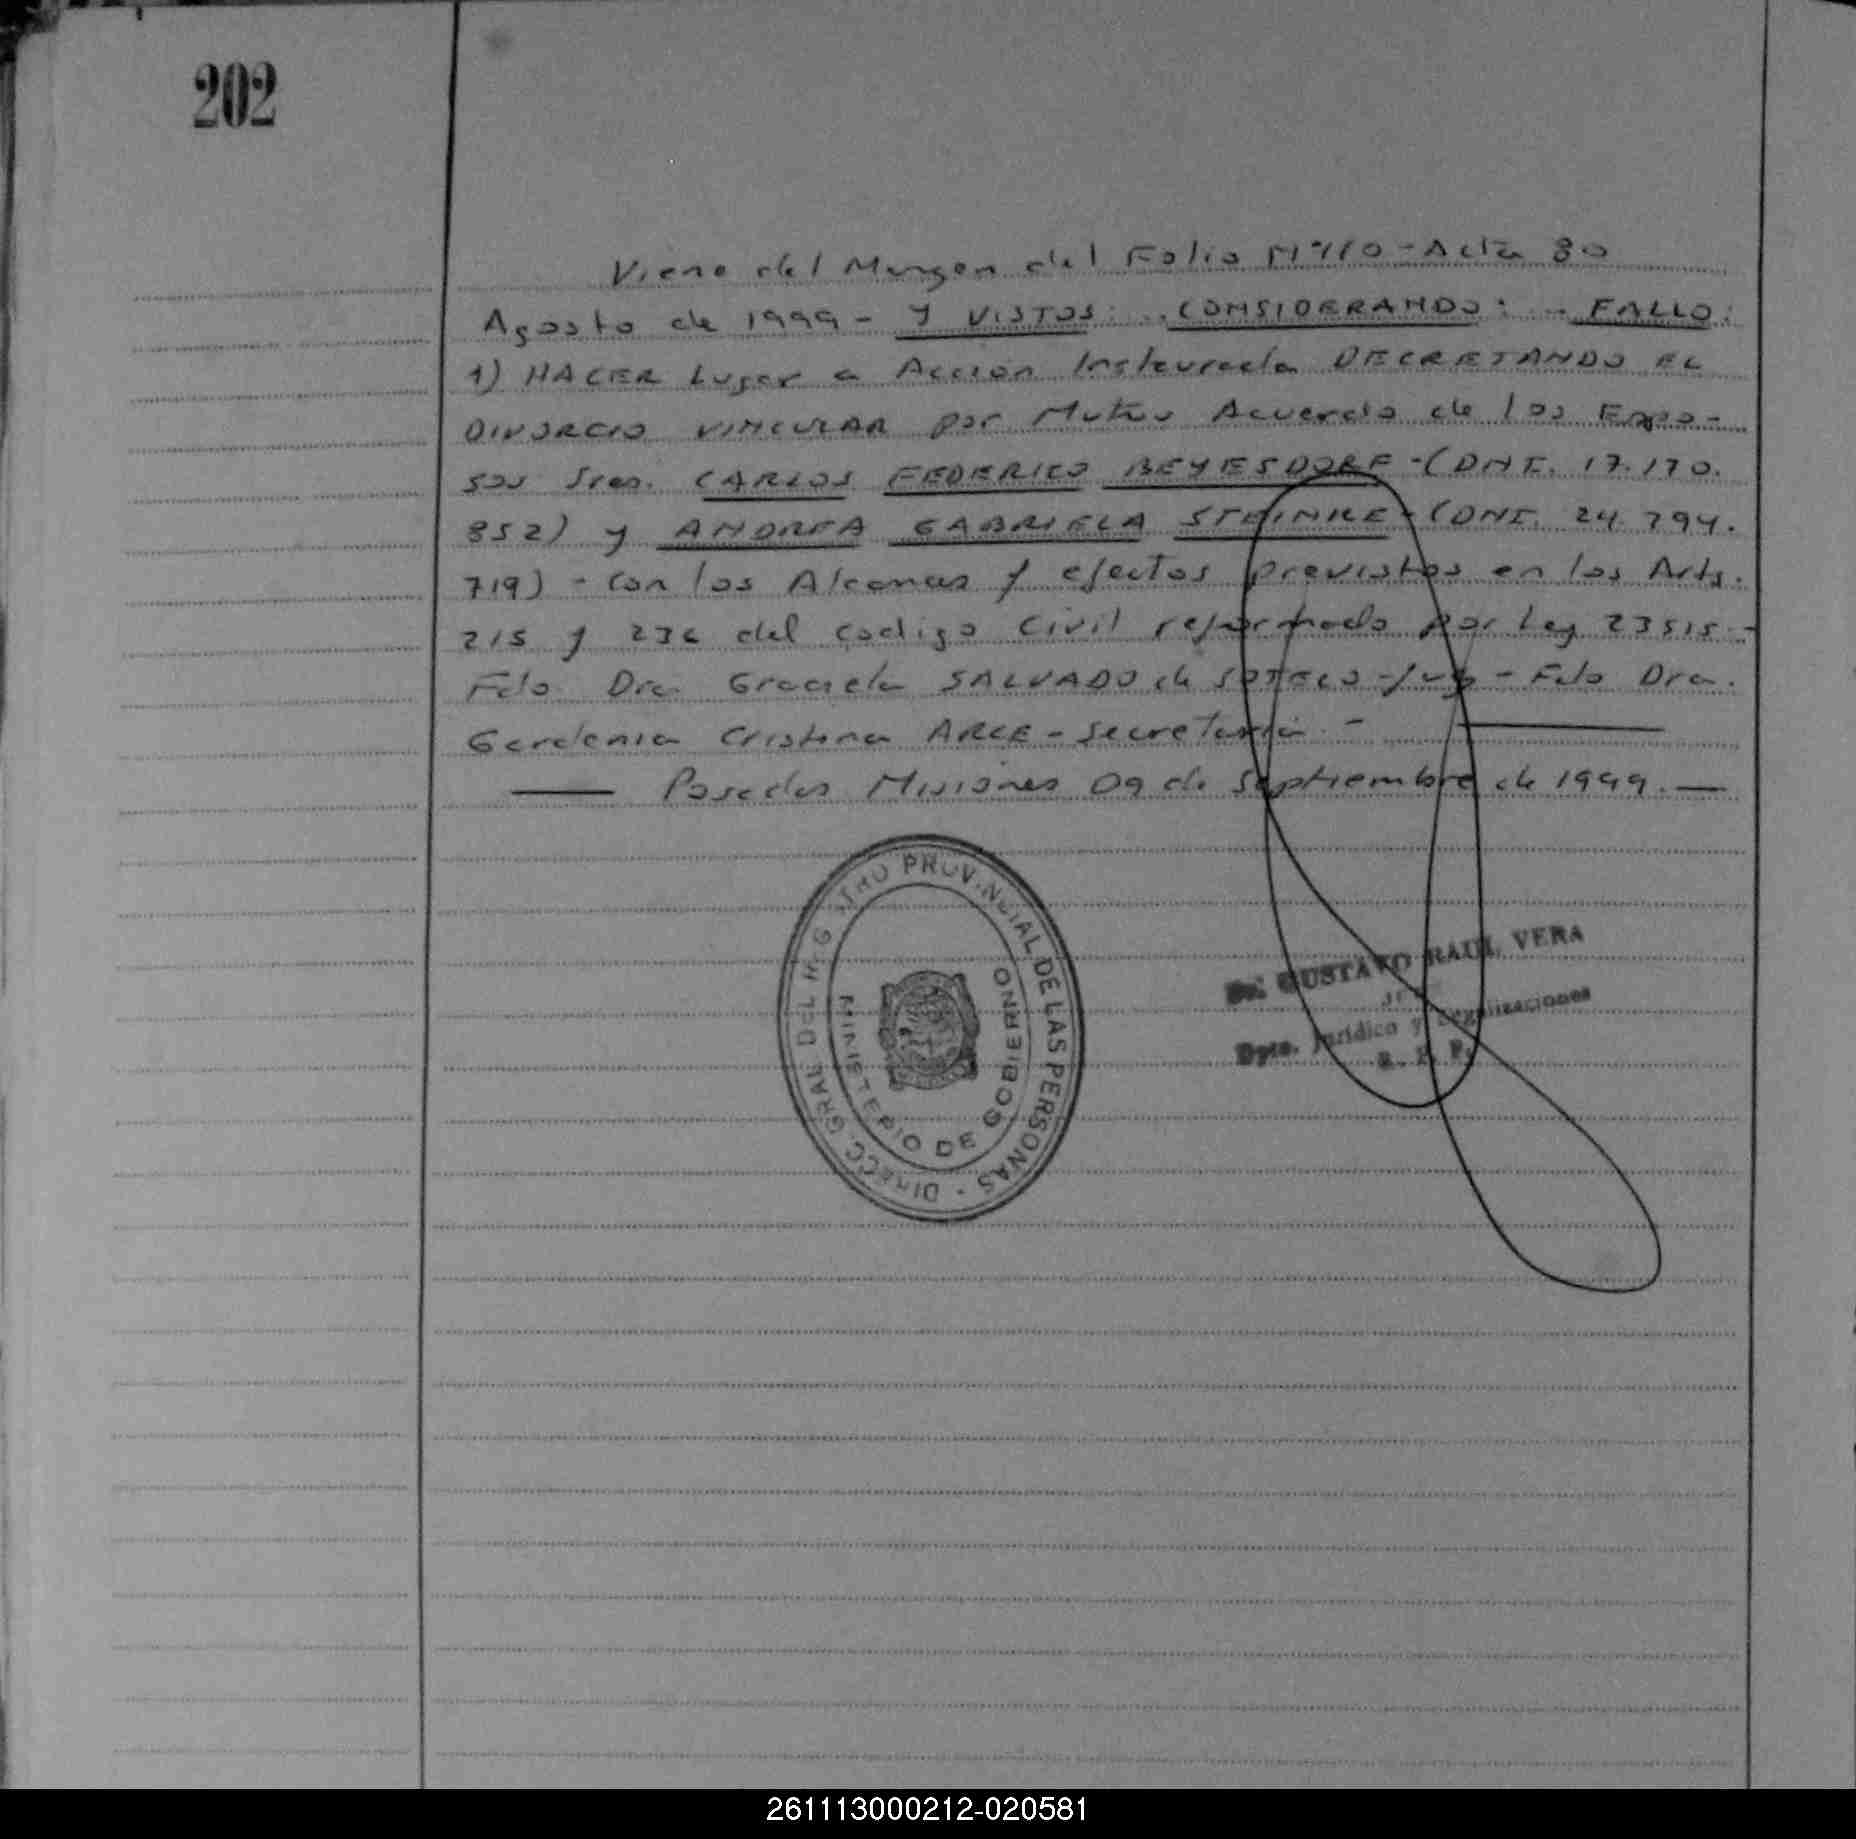 202
Viene del Margen del Folio Nº110 - Acta 80
Agosto de 1999 - Y VISTOS: .. CONSIDERANDO: .. FALLO:
1) HACER Lugar a Accion Instaurada DECRETANDO EL
DIVORCIO VINCULAR por Mutuo Acuerdo de los Espo-
sos Sres. CARLOS FEDERICO BEYESDORF - (DNI. 17.170.
852) y ANDREA GABRIELA STEINKE - (DNI. 24.794.
719) - Con los Alcances y efectos previstos en los Arts.
215 y 236 del codigo Civil reformado por Ley 23515 -
Fdo Dra. Graciela SALVADO de SOTELO - Juez - Fdo Dra.
Gardenia Cristina ARCE - Secretaria. -
Posadas Misiones 09 de Septiembre de 1999. -
DIRECC. GRAL DEL REGISTRO PROVINCIAL DE LAS PERSONAS -
MINISTERIO DE GOBIERNO
Dr. GUSTAVO RAUL VERA
JEFE
Dpto. Jurídico y Legalizaciones
R. P. P.
261113000212-020581